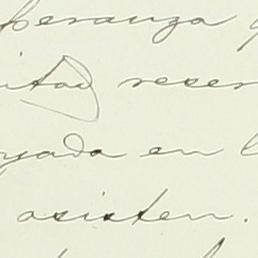 peranza
itad reser
yada en l
asisten.